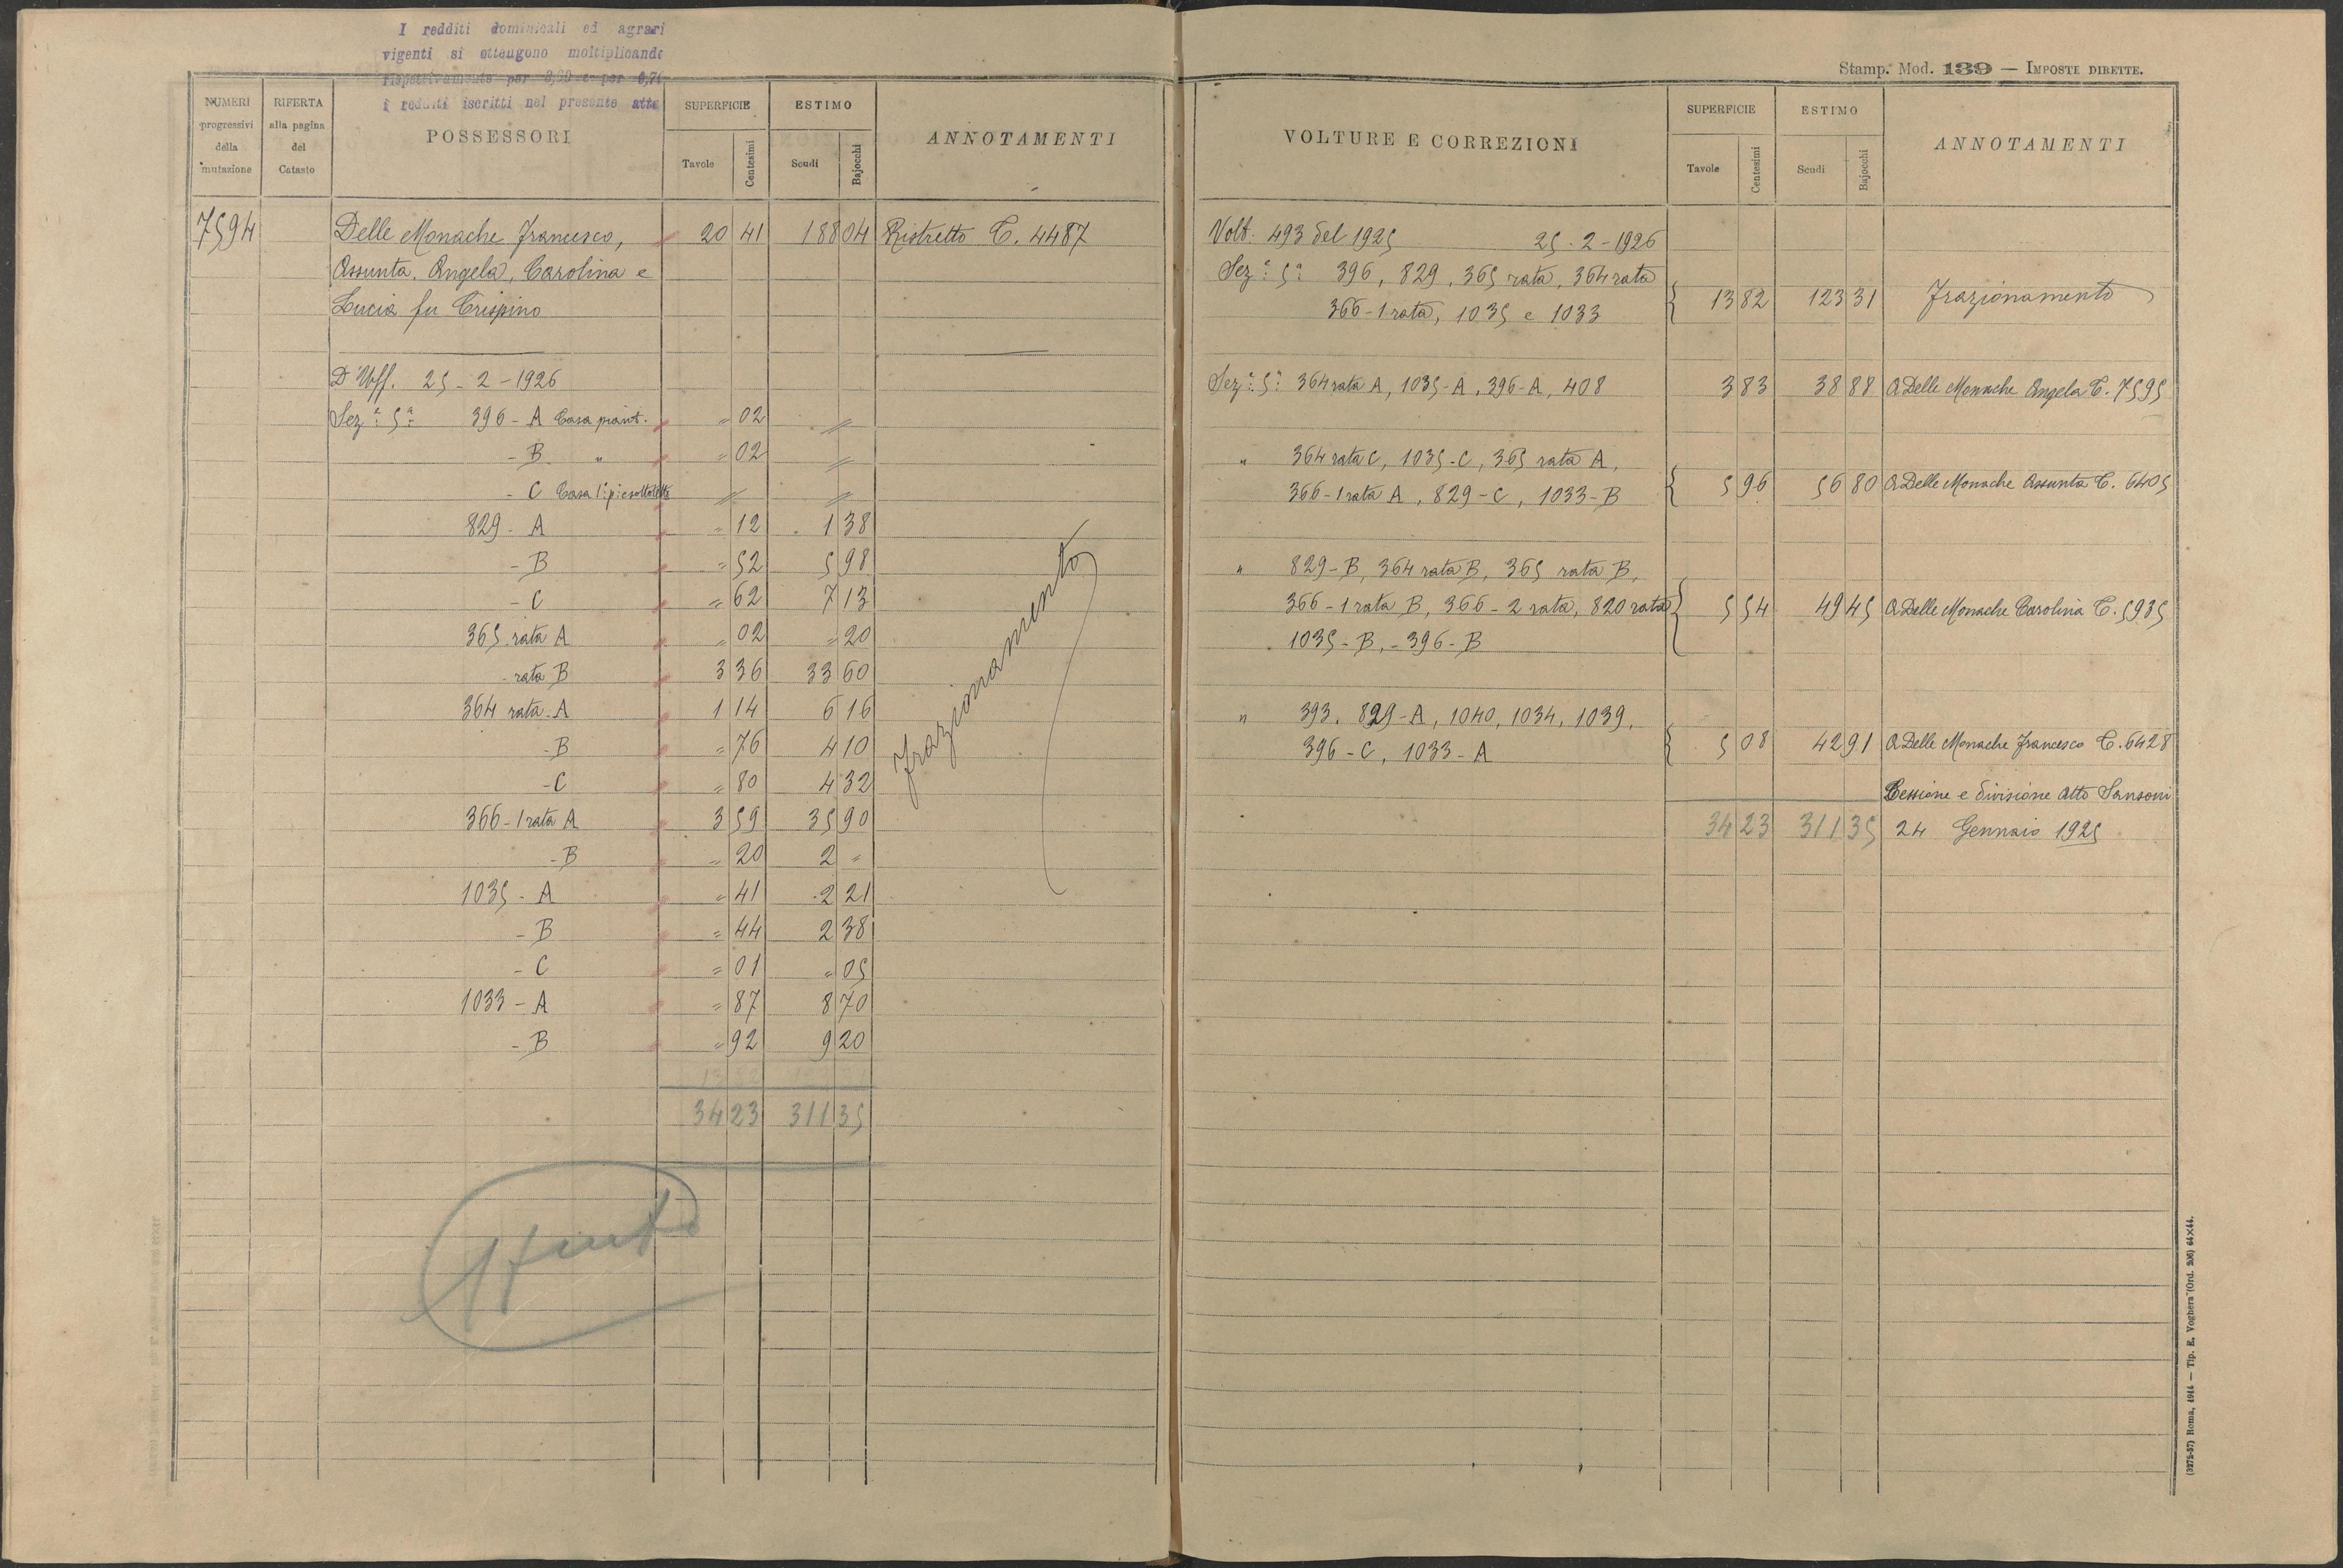 I redditi dominicali ed agrari
vigenti si ottengono moltiplicando
rispettivamente per
i redditi iscritti nel presente atto
NUMERI progressivi della mutazione
RIFERTA alla pagina del Catasto
POSSESSORI
SUPERFICIE Tavole Centesimi
ESTIMO Scudi Bajocchi
ANNOTAMENTI
7594 Delle Monache Francesco, 20 41 188 04 Ristretto C. 4487
Assunta, Angela, Carolina e
Lucia fu Crispino
D'Uff. 25-2-1926
Sez.ª 5ª 396 - A Casa piant. " 02 "
- B " " 02 "
- C Casa 1° p. e sottotetto " "
829 - A " 12 1 38
- B " 52 5 98
- C " 62 7 13
365 rata A " 02 " 20
- rata B 3 36 33 60
364 rata - A 1 14 6 16
- B " 76 4 10
- C " 80 4 32
366 - 1 rata A 3 59 35 90
- B " 20 2 "
1035 - A " 41 2 21
- B " 44 2 38
- C " 01 " 05
1033 - A " 87 8 70
- B " 92 9 20
34 23 311 35
Frazionamento
Stamp. Mod. 139 — IMPOSTE DIRETTE.
VOLTURE E CORREZIONI
SUPERFICIE Tavole Centesimi
ESTIMO Scudi Bajocchi
ANNOTAMENTI
Volt. 493 del 1925 25-2-1926
Sez.ª 5ª 396, 829, 365 rata, 364 rata
366 - 1 rata, 1035 e 1033 13 82 123 31 Frazionamento
Sez.ª 5ª 364 rata A, 1035-A, 396-A, 408 3 83 38 88 A Delle Monache Angela C. 7595
" 364 rata C, 1035-C, 365 rata A,
366-1 rata A, 829-C, 1033-B 5 96 56 80 A Delle Monache Assunta C. 6405
" 829-B, 364 rata B, 365 rata B,
366-1 rata B, 366-2 rata, 820 rata 5 54 49 45 A Delle Monache Carolina C. 5935
1035-B, - 396-B
" 393, 829-A, 1040, 1034, 1039,
396-C, 1033-A 5 08 42 91 A Delle Monache Francesco C. 6428
Cessione e divisione Atto Sansoni
34 23 311 35 24 Gennaio 1925
(3275-57) Roma, 1914 — Tip. E. Voghera (Ord. 206) 64×44.